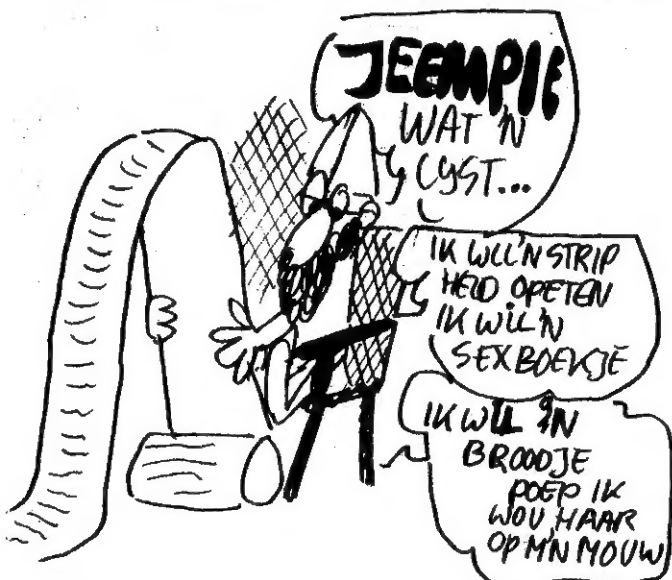 JEEMPIE
WAT 'N
LYST...
IK WIL'N STRIP
HELD OPETEN
IK WIL'N
SEXBOEKJE
IK WIL 'N
BROODJE
POEP IK
WOU HAAR
OP M'N MOUW